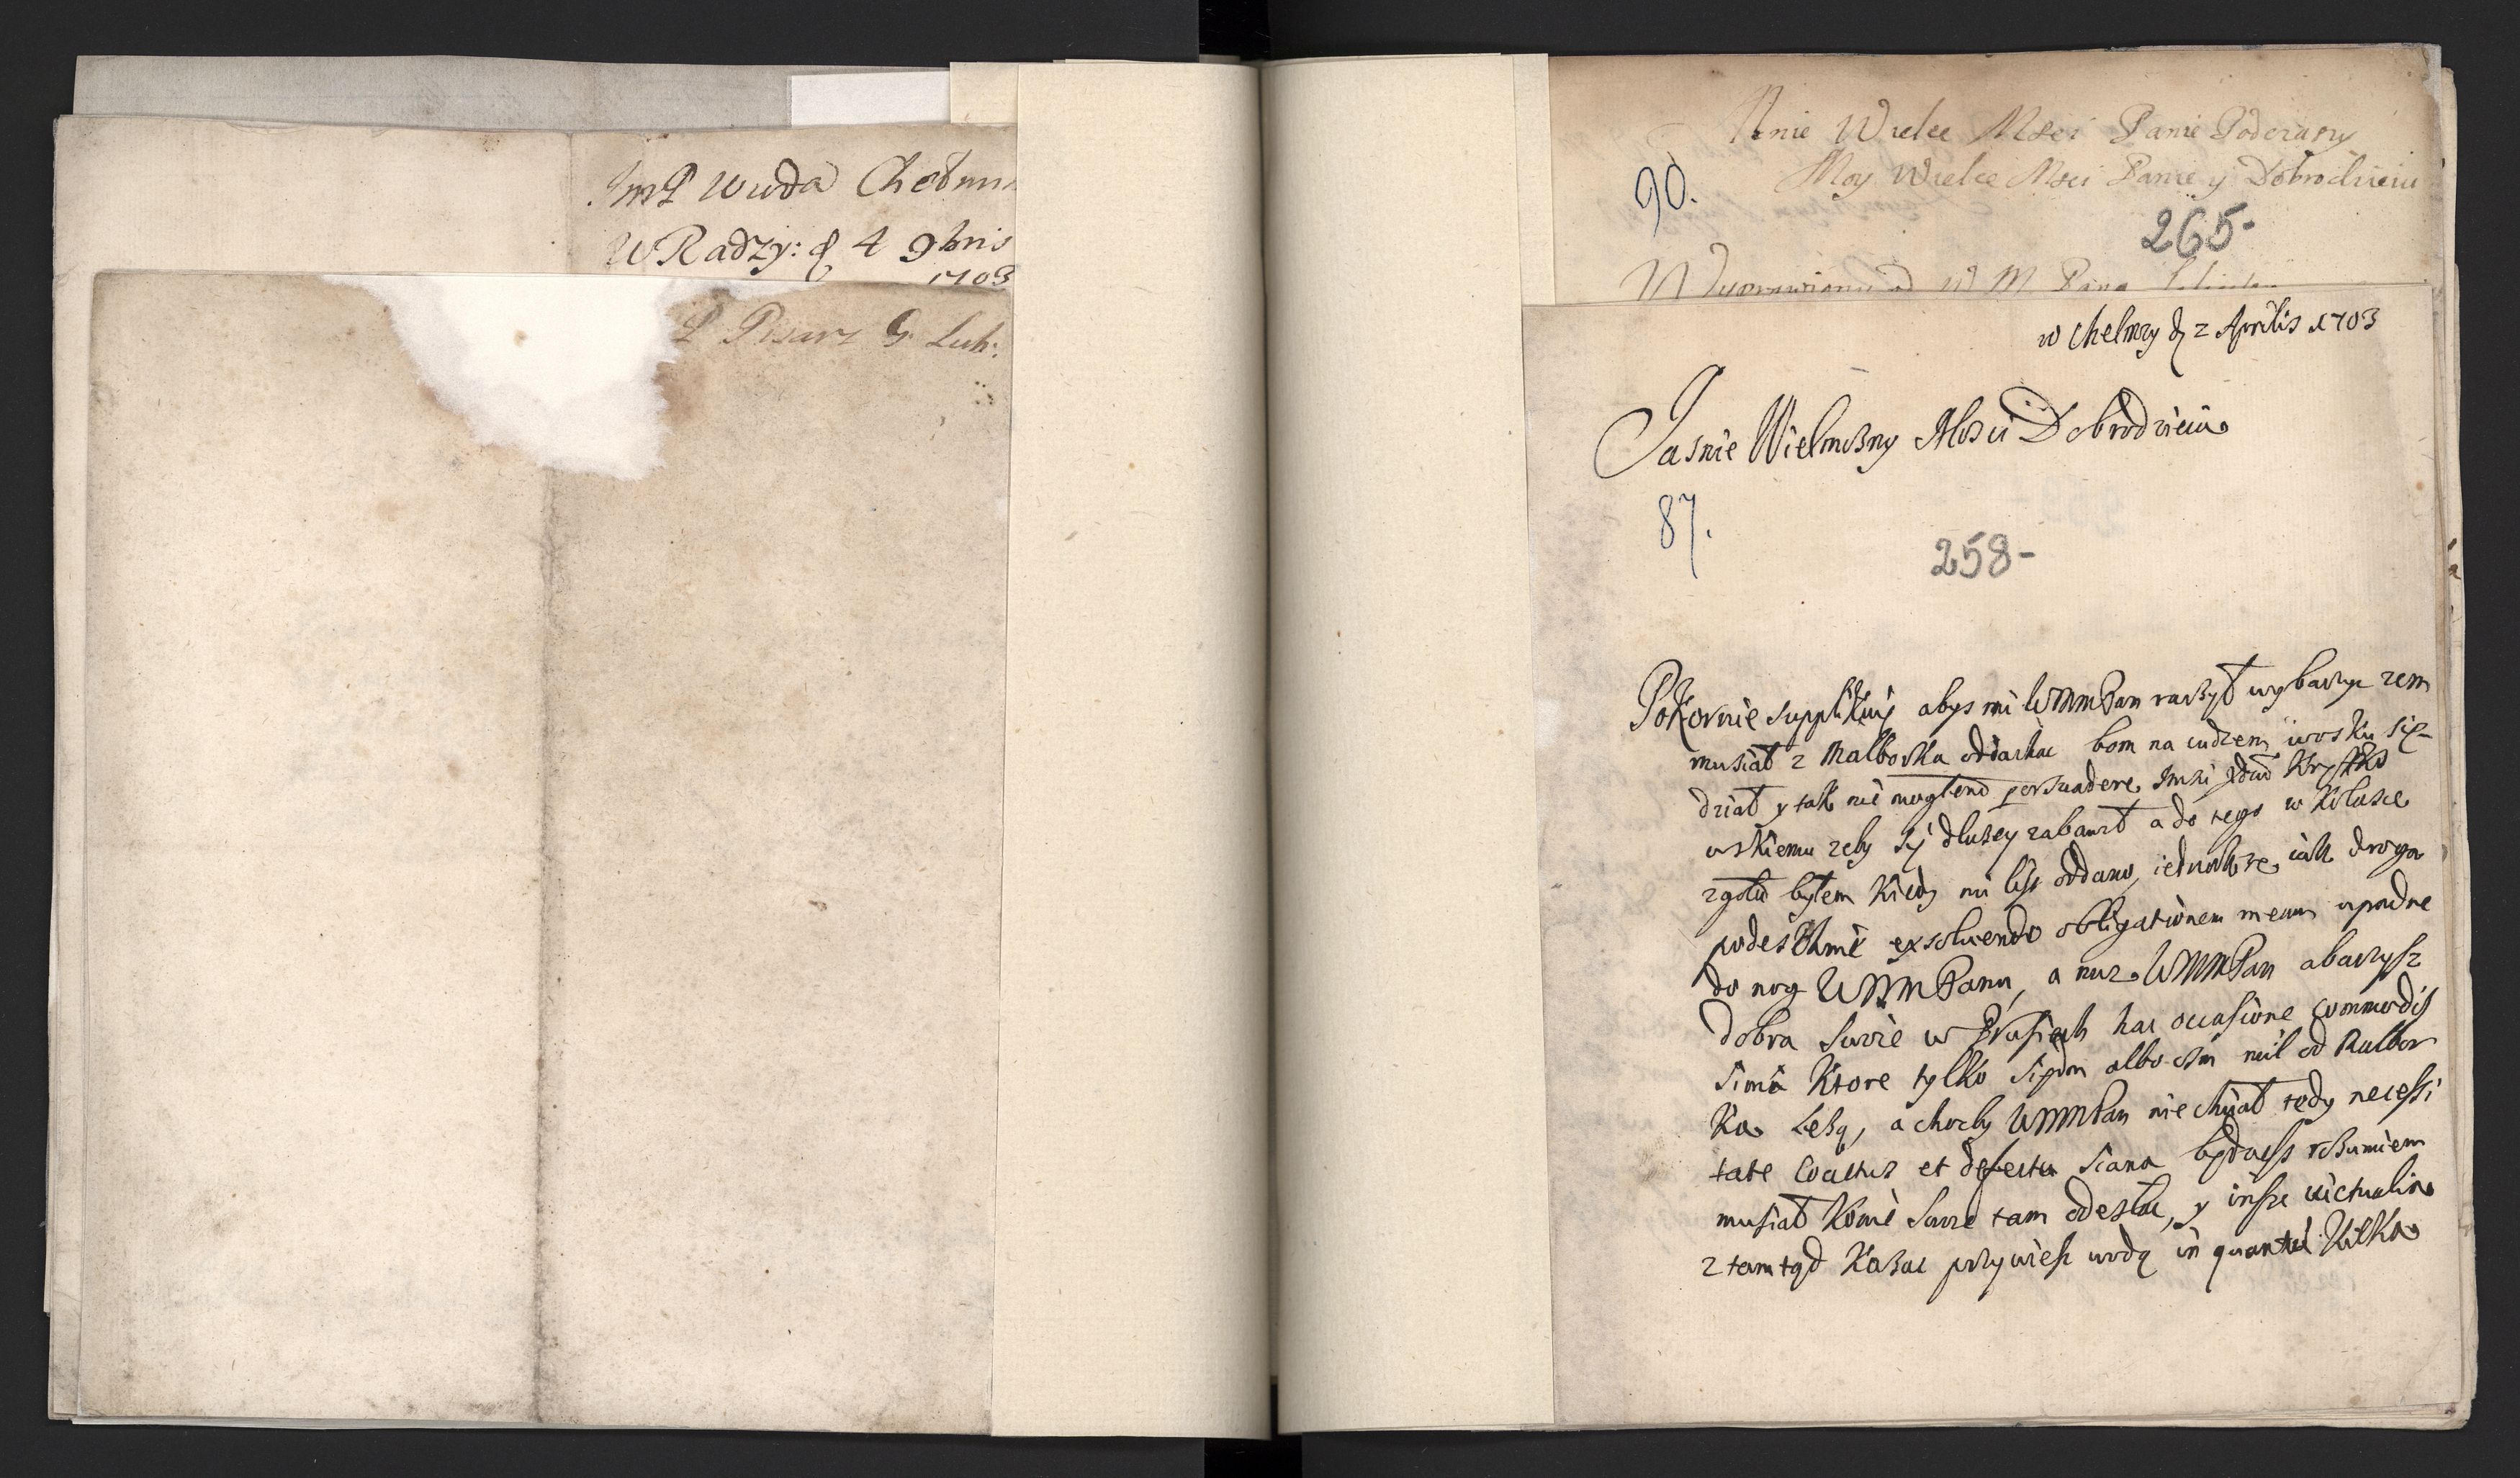 JmP Wwda Chełmi
W Radzy: d 4 9bris
1703
P Pisarz G. Lub:
Wielce Msci Panie Podczaszy
90.
Moy Wielce Msci Panie y Dobrodzieiu
265-
W M Pana
w Chelmzy d 2 Aprilis 1703
Jasnie Wielmozny Mosci Dobrodzieiu
87.
258-
Pokornie supplikuię abys mi WMMPan raczył wybaczyc zem
musiał z Malborka odiachac bom na cudzem wosku się-
dział y tak nie mogłem persvadere Imsci Xdzu Krysztko
wskiemu zeby się dłuzey zabawił a do tego w Kolasce
zgoła byłem kiedy mi list oddano, iednakze iak droga
podeschnie exsoluendo obligationem meam upadne
do nog WMMPanu, a nuz WMMPan abaczysz
dobra swoie w Prusiech hac occasione commodis
sima ktore tylko siedm albo osm mil od Malbor
ka lezą, a chocby WMMPan nie chciał tedy necessi
tate coactus et defectu siana będziesz rozumiem
musiał konie swoie tam odesłac, y insze victualia
z tamtąd kazac przywiesc wodą in quantu kilka